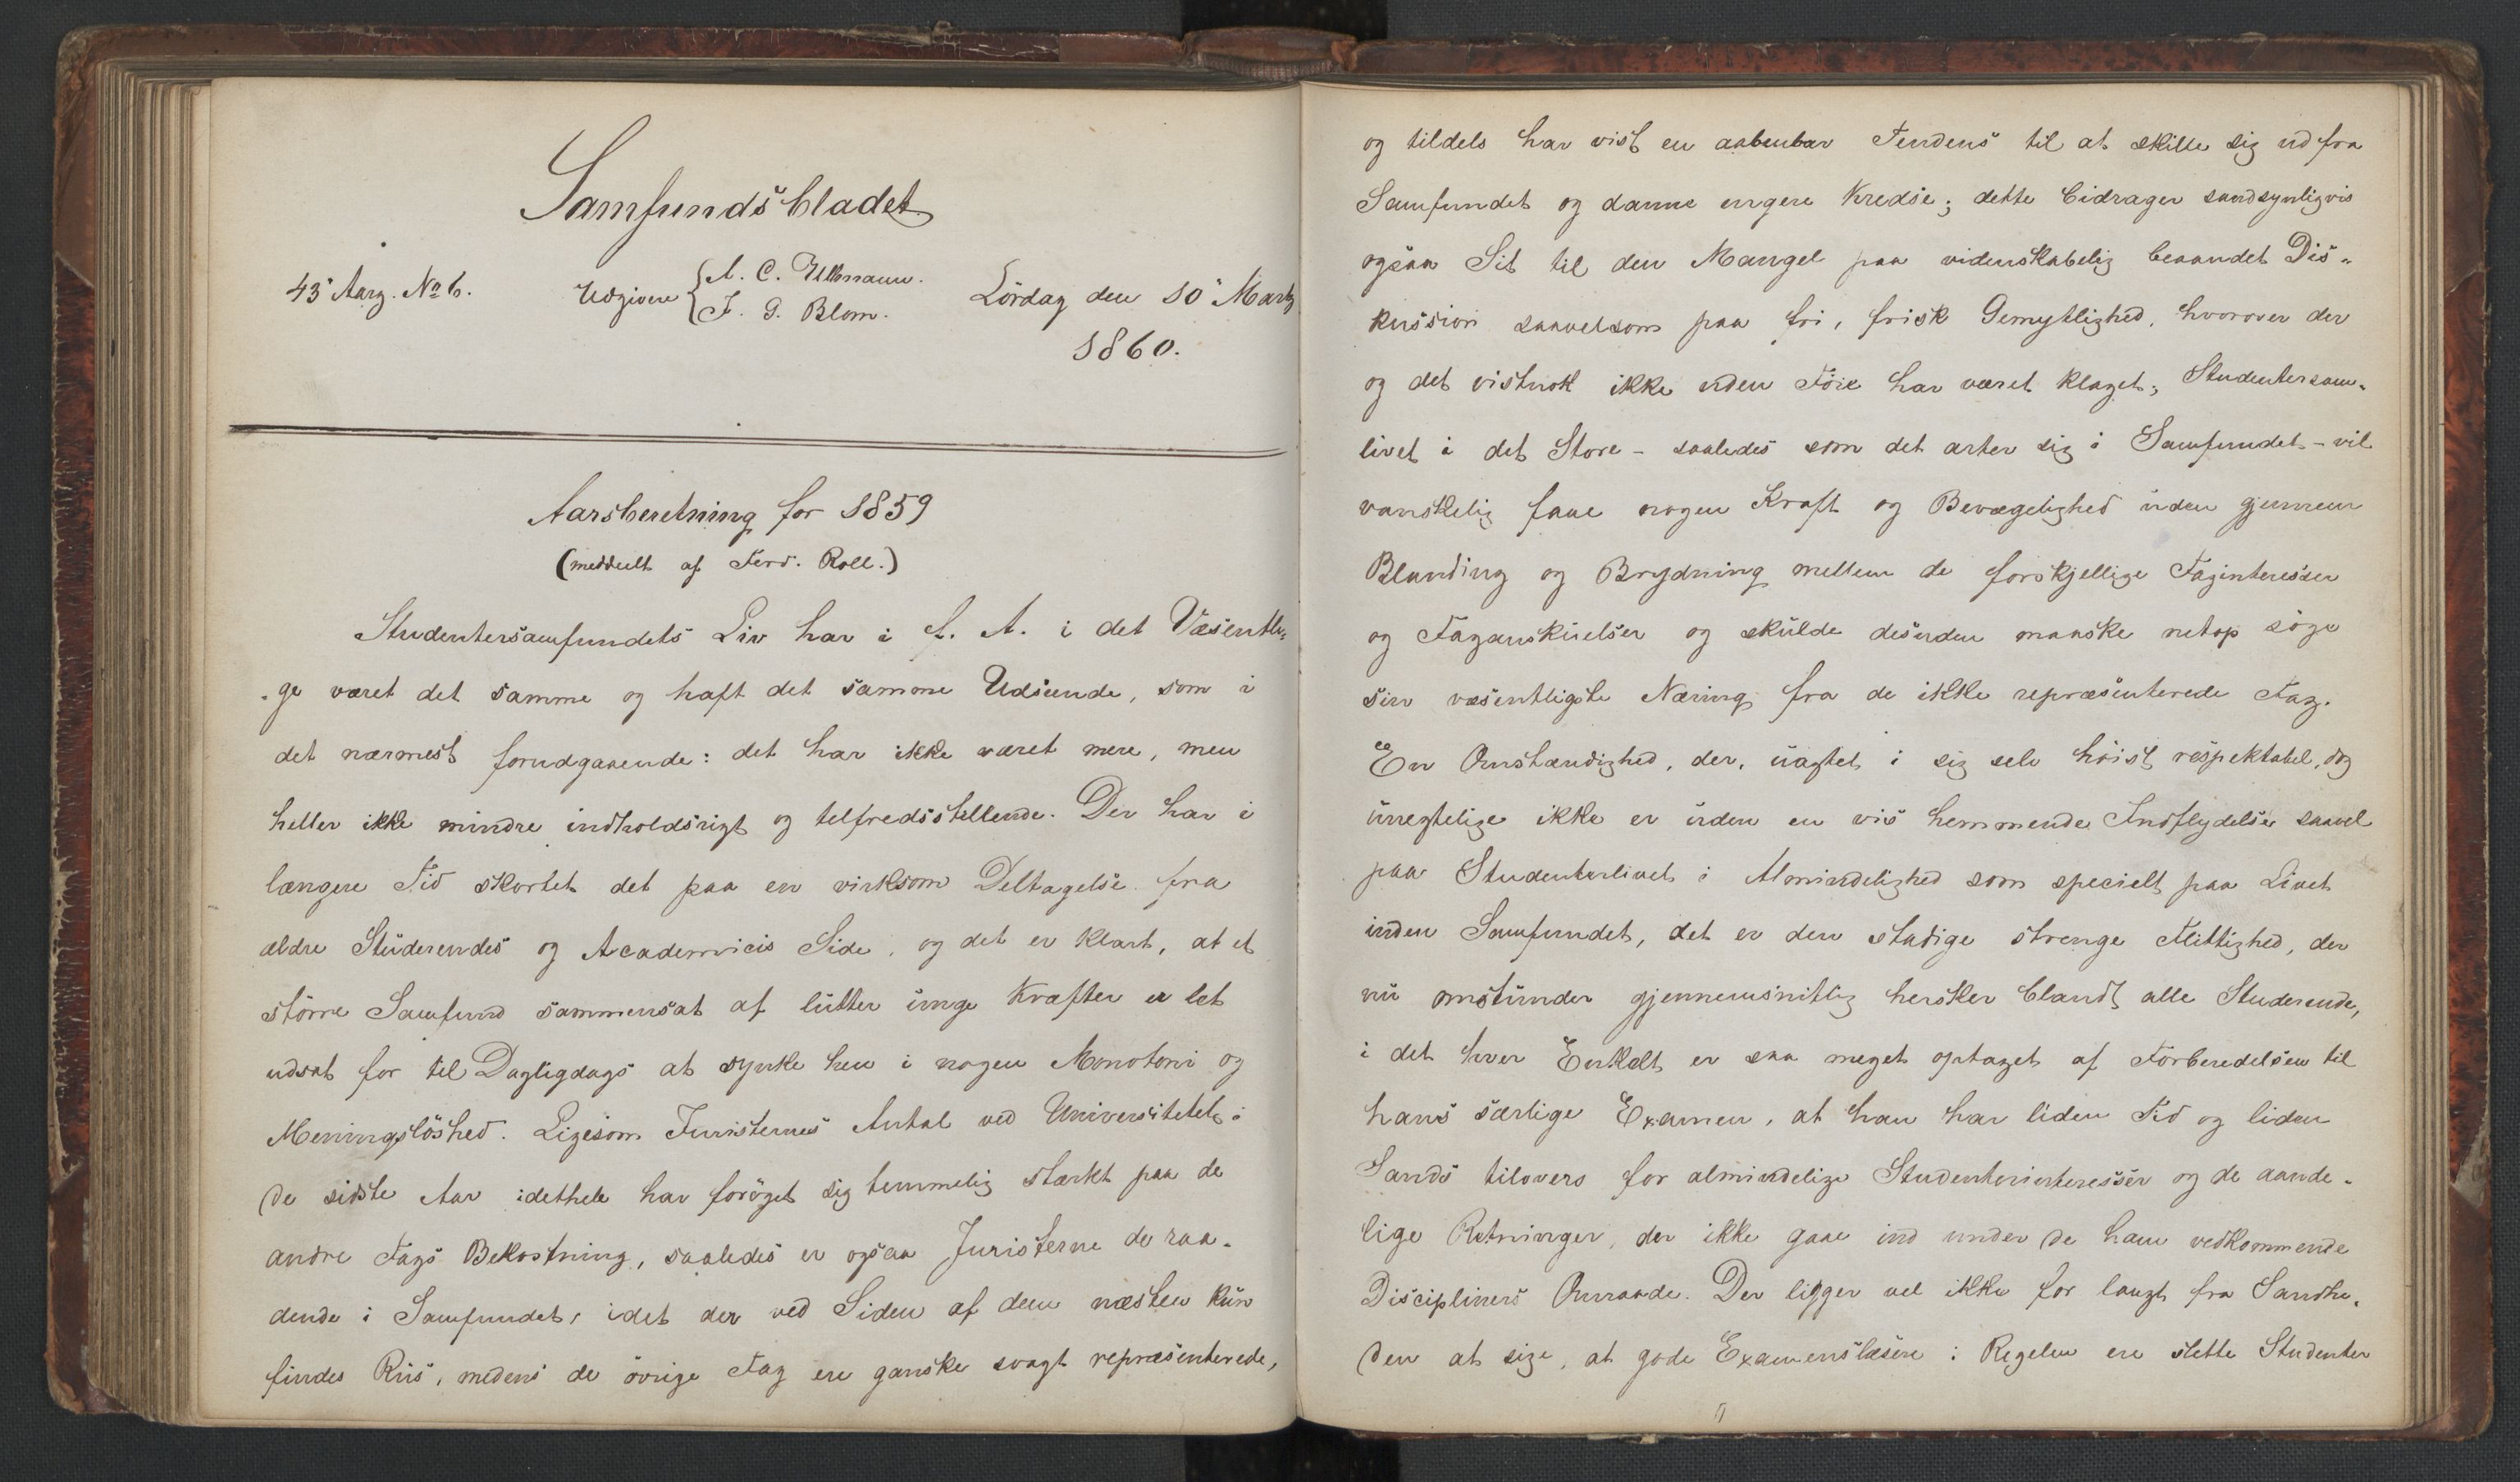 Samfundsbladet
43' Aarg. No 6. Udgivere { A. C. Ullmann. Lördag den 10' Marts
J. G. Blom.
1860.
Aarsberetning for 1859
(meddeelt af Ferd. Roll.)
Studentersamfundets Liv har i f. A. i det Væsentli-
-ge været det samme og haft det samme Udseende, som i
det nærmest forudgaaende: det har ikke været mere, men
heller ikke mindre indholdsrigt og tilfredsstillende. Der har i
længere Tid skortet det paa en virksom Deltagelse fra
ældre Studerendes og Academicis Side, og det er klart, at et
større Samfund sammensat af lutter unge Kræfter er let
udsat for til Dagligdags at synke hen i nogen Monotoni og
Meningslöshed. Ligesom Juristernes Antal ved Universitetet i
de sidste Aar idethele har foröget sig temmelig stærkt paa de
andre Fags Bekostning, saaledes er ogsaa Juristerne de raa-
dende i Samfundet, idet der ved Siden af dem næsten kun
findes Rus, medens de övrige Fag ere ganske svagt repræsenterede,
og tildels har vist en aabenbar Tendens til at skille sig ud fra
Samfundet og danne engere Kredse; dette bidrager sandsynligvis
ogsaa Sit til den Mangel paa videnskabelig beaandet Dis-
kussion saavelsom paa fri, frisk Gemytlighed, hvorover der
og det vistnok ikke uden Föie har været klaget; Studentersam-
livet i det Store - saaledes som det arter sig i Samfundet - vil
vanskelig faae nogen Kraft og Bevægelighed uden gjennem
Blanding og Brydning mellem de forskjellige Faginteresser
og Faganskuelser og skulde desuden maaske netop söge
sin væsentligste Næring fra de ikke repræsenterede Fag.
En Omstændighed, der, uagtet i sig selv höist respektabel, dog
unegtelige ikke er uden en vis hemmende Indflydelse saavel
paa Studenterlivet i Almindelighed som specielt paa Livet
inden Samfundet, det er den stadige strenge Flittighed, der
nu omstunder gjennemsnitlig hersker blandt alle Studerende,
i det hver Enkelt er saa meget optaget af Forberedelsen til
hans særlige Examen, at han har liden Tid og liden
Sands tilovers for almindelige Studenterinteresser og de aande-
lige Retninger, der ikke gaae ind under de ham vedkommende
Discipliners Omraade. Der ligger vel ikke for langt fra Sandhe-
den at sige, at gode Examenslæsere i Regelen ere slette Studenter